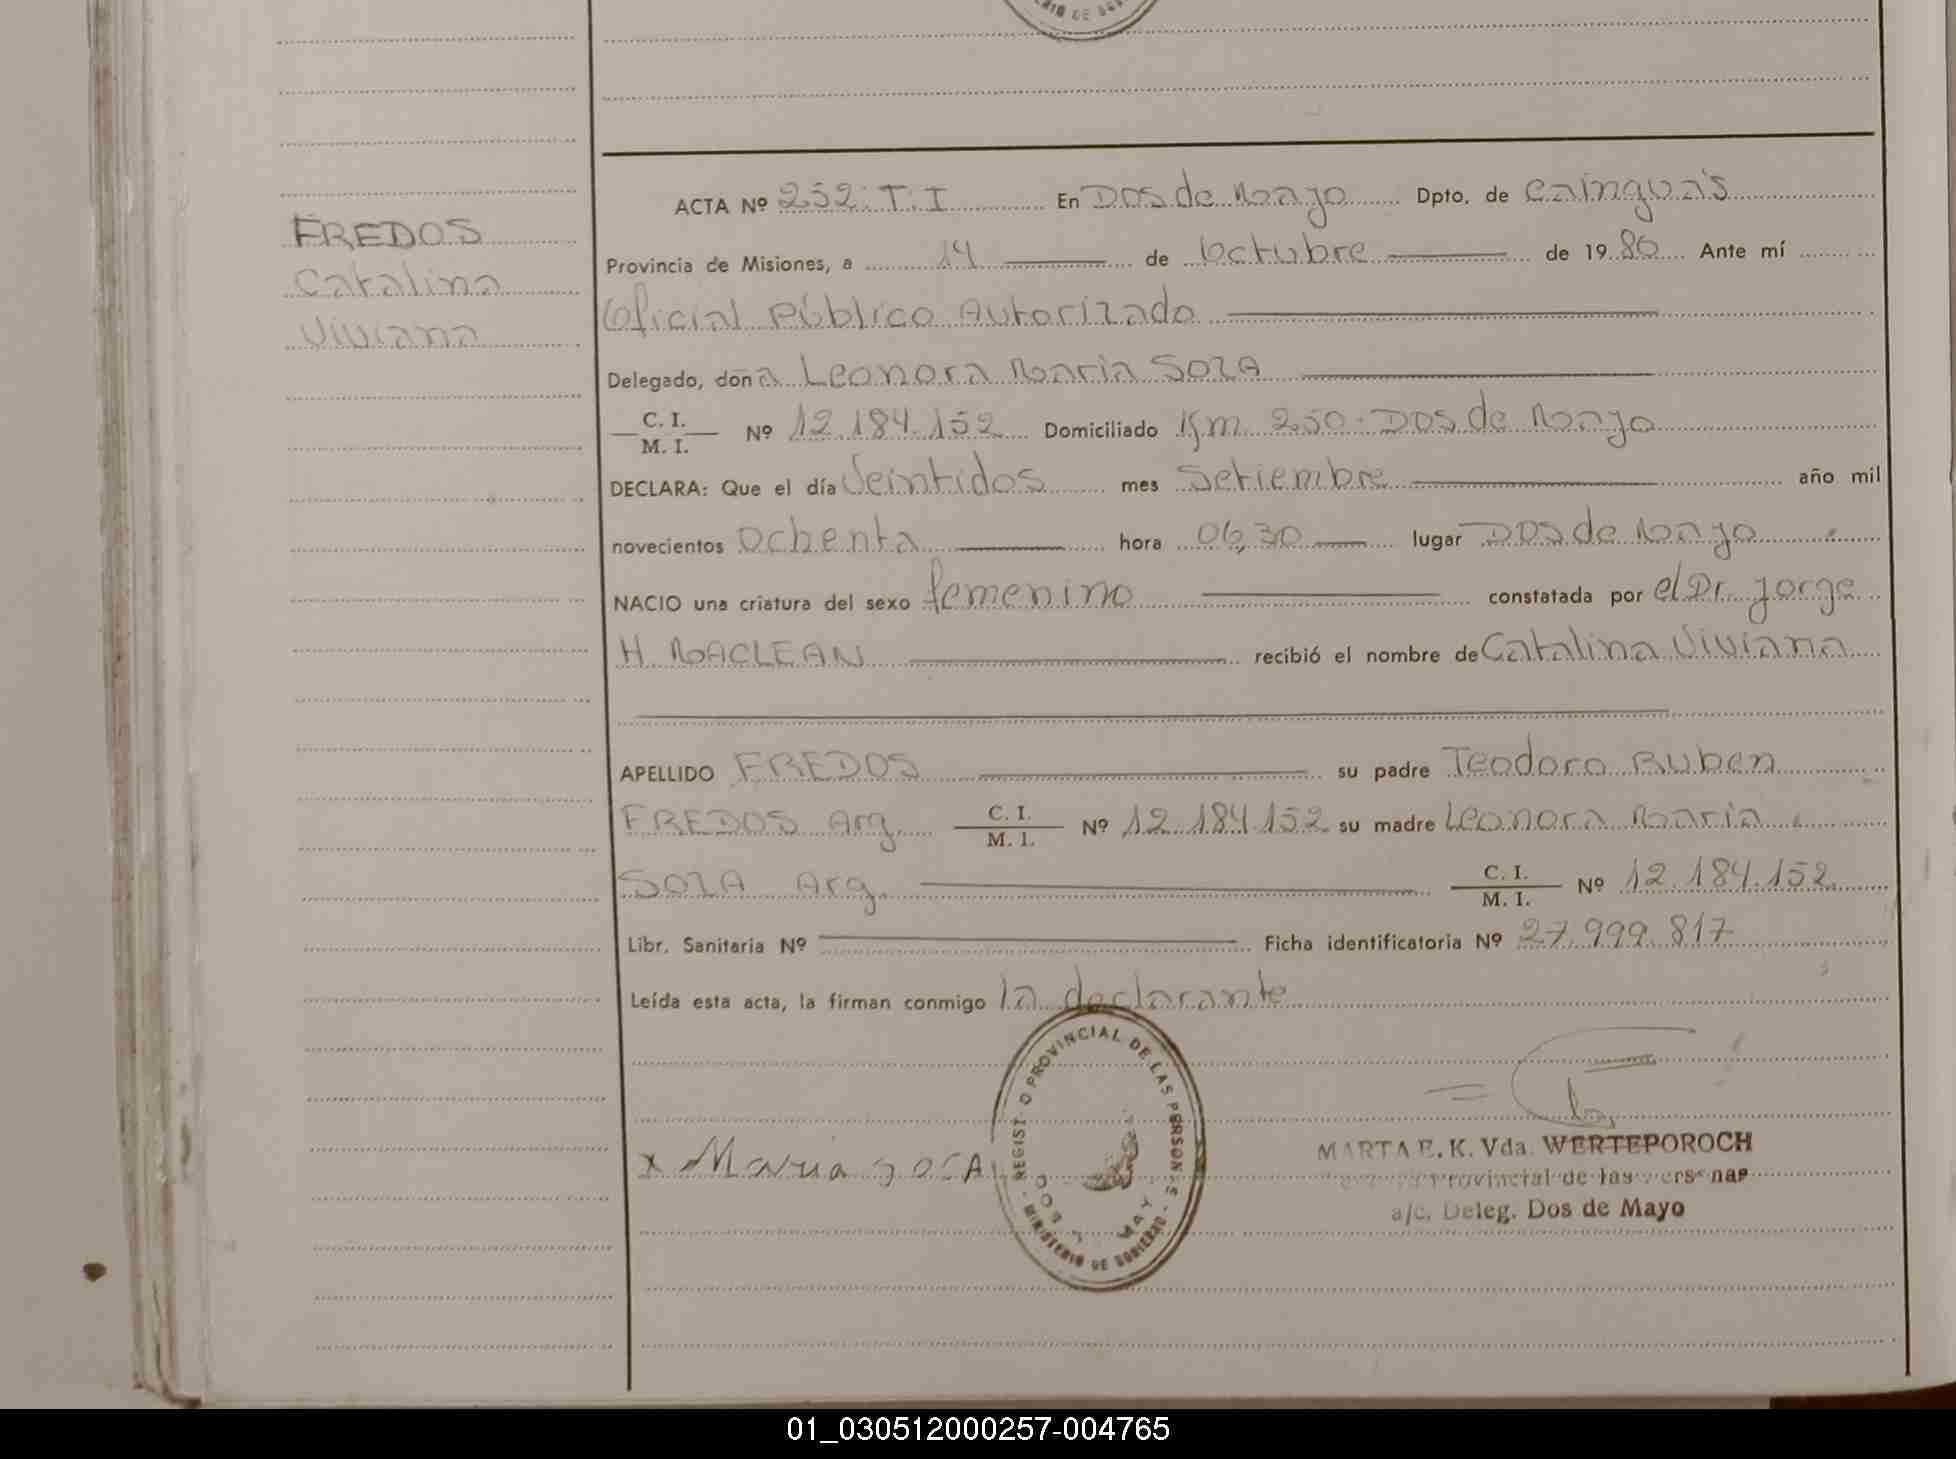 ACTA Nº 252. T. I En Dos de Mayo Dpto. de Cainguás
FREDOS
Provincia de Misiones, a 14 de Octubre de 1980 Ante mí
Catalina
Oficial Público Autorizado
Viviana
Delegado, doña Leonora Maria SOZA
C. I.
M. I. Nº 12.184.152 Domiciliado Km 250 - Dos de Mayo
DECLARA: Que el día Veintidos mes Setiembre año mil
novecientos Ochenta hora 06,30 lugar Dos de Mayo
NACIO una criatura del sexo femenino constatada por el Dr. Jorge
H. MACLEAN recibió el nombre de Catalina Viviana
APELLIDO FREDOS su padre Teodoro Ruben
FREDOS Arg. C. I. M. I. Nº 12.184.152 su madre Leonora Maria
SOZA Arg. C. I. M. I. Nº 12.184.152
Libr. Sanitaria Nº Ficha identificatoria Nº 27.999.817
Leída esta acta, la firman conmigo la declarante
REGIST O PROVINCIAL DE LAS PERSONAS
DOS MAY
MINISTERIO DE GOBIERNO
x Maria SOSA
MARTA E. K. Vda. WERTEPOROCH
Provincial de las Personas
a/c. Deleg. Dos de Mayo
01_030512000257-004765